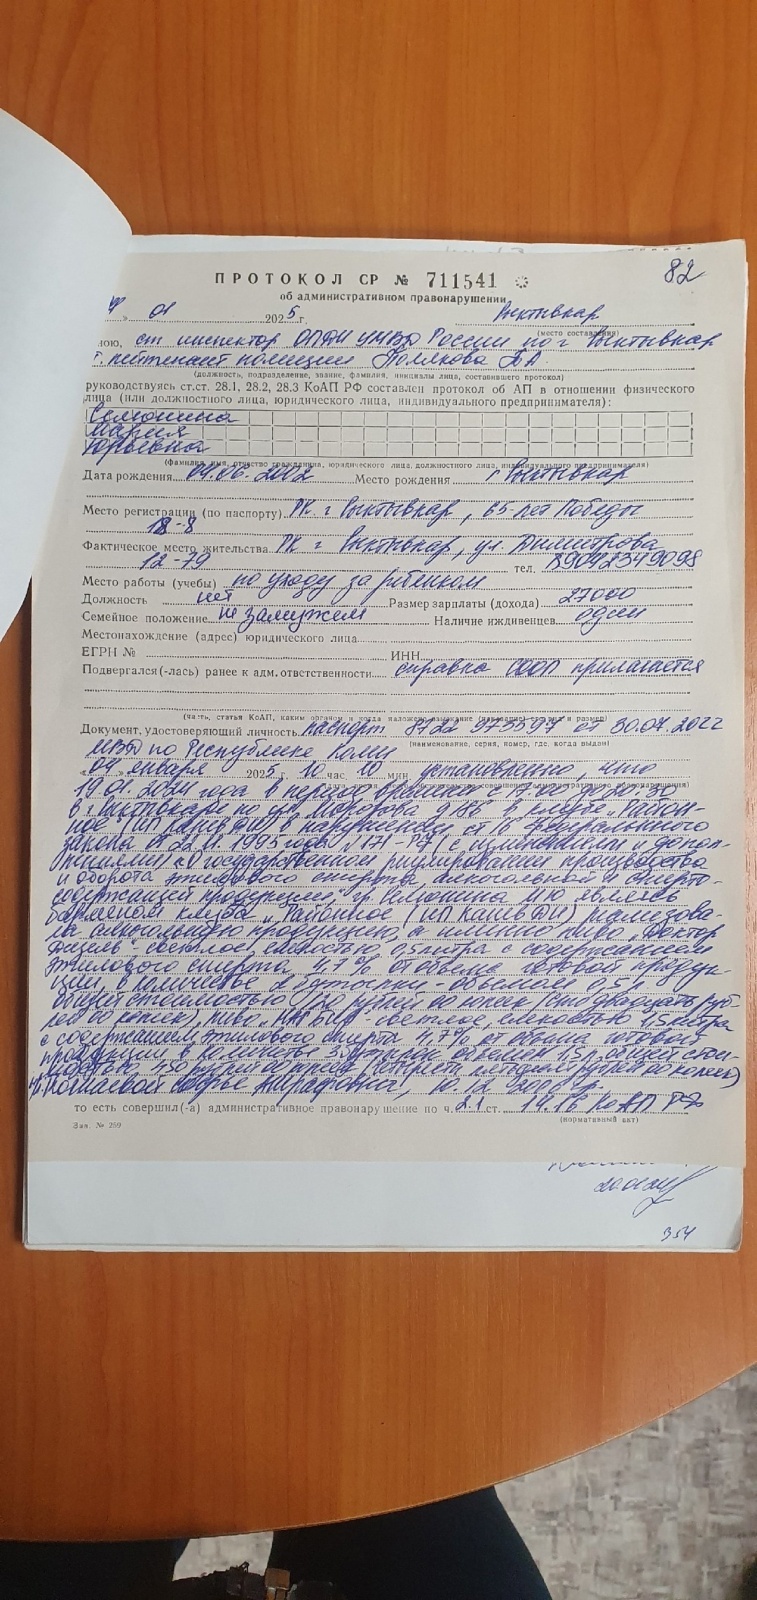 82
ПРОТОКОЛ СР № 711541
об административном правонарушении
» 01 2025 г. Сыктывкар
(место составления)
мною, ст инспектор ОПДН УМВД России по г Сыктывкар
лейтенант полиции Полякова
(должность, подразделение, звание, фамилия, инициалы лица, составившего протокол)
руководствуясь ст.ст. 28.1, 28.2, 28.3 КоАП РФ составлен протокол об АП в отношении физического
лица (или должностного лица, юридического лица, индивидуального предпринимателя):
Семонина
Мария
Юрьевна
(фамилия, имя, отчество гражданина, юридического лица, должностного лица, индивидуального предпринимателя)
Дата рождения 04.06.2002 Место рождения г Сыктывкар
Место регистрации (по паспорту) РК г Сыктывкар, 65-лет Победы
18-8
Фактическое место жительства РК г Сыктывкар, ул. Димитрова
12-79 тел. 89042349098
Место работы (учебы) по уходу за ребенком
Должность нет Размер зарплаты (дохода) 27000
Семейное положение не замужем Наличие иждивенцев один
Местонахождение (адрес) юридического лица
ЕГРН № ИНН
Подвергался(-лась) ранее к адм. ответственности справка СООП прилагается
(часть, статья КоАП, каким органом и когда наложено взыскание
Документ, удостоверяющий личность паспорт 8722 973597 от 30.07.2022
(наименование, серия, номер, где, когда выдан)
МВД по Республике Коми
января 2025 г. 10 час. 10 мин. установлено, что
19.01.2024 года в период времени
в г. Сыктывкар по ул.
закона от 22.11.1995 года N 171-ФЗ (с изменениями и допол-
нениями) «О государственном регулировании производства
и оборота этилового спирта, алкогольной и спирто-
содержащей продукции», гр. Семонина М.Ю являясь
барменом клуба „Районное (ИП реализова-
ла алкогольную продукцию, а именно пиво „Доктор
Дизель" светлое, емкостью 0,5 литра с содержанием
этилового спирта 4.7% от объема готовой продук-
ции, в количестве 2 бутылки объемом 0,5л
общей стоимостью 120 рублей 00 копеек (сто двадцать руб-
лей 00 копеек), пиво светлое, емкостью 1,5 литра
с содержанием этилового спирта 4.7% от объема готовой
продукции, в количестве 3 бутылки объемом 1,5л общей стои-
мостью 450 рублей 00 копеек (четыреста пятьдесят рублей 00 копеек)
то есть совершил(-а) административное правонарушение по ч. 2.1 ст. 14.16 КоАП РФ
(нормативный акт)
Зак. № 259
354